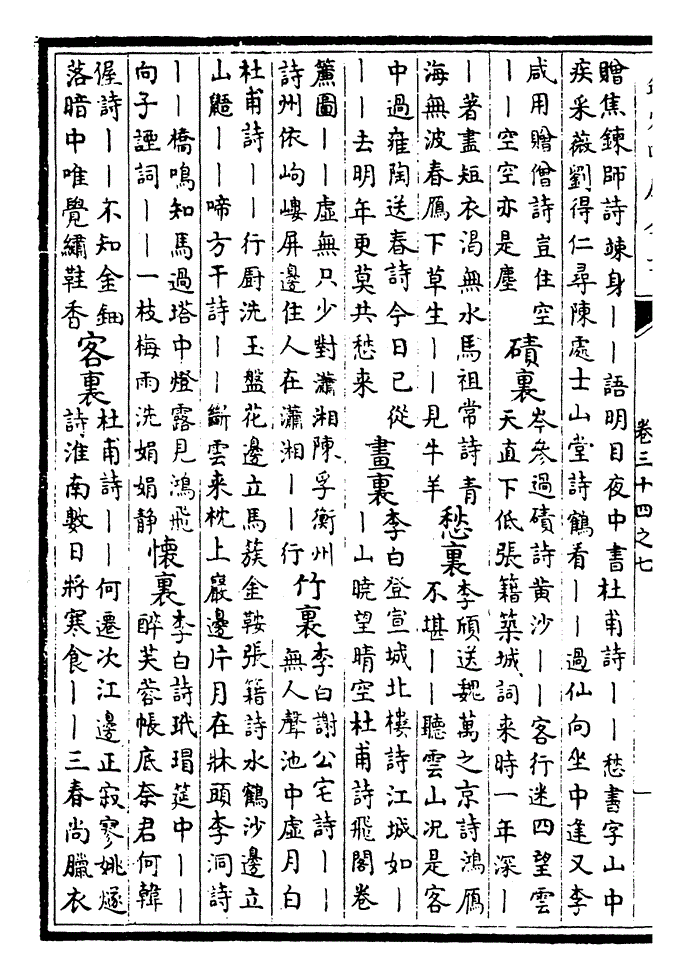 贈焦鍊師詩竦身丨丨語明日夜中書杜甫詩丨丨愁書字山中
疾采薇劉得仁尋陳處士山堂詩鶴看丨丨過仙向坐中逢又李
咸用贈僧詩豈住空
丨丨空空亦是塵
磧裏
岑參過磧詩黄沙丨丨客行迷四望雲
天直下低張籍築城詞来時一年深丨
丨著盡短衣渴無水馬祖常詩青
海無波春鴈下草生丨丨見牛羊
愁裏
李頎送魏萬之京詩鴻鴈
不堪丨丨聽雲山况是客
中過雍陶送春詩今日已從
丨丨去明年更莫共愁来
畫裏
李白登宣城北樓詩江城如丨
丨山暁望晴空杜甫詩飛閣卷
簾圖丨丨虛無只少對瀟湘陳孚衡州
詩州依岣嶁屏邊住人在瀟湘丨丨行
竹裏
李白謝公宅詩丨丨
無人聲池中虛月白
杜甫詩丨丨行厨洗玉盤花邊立馬簇金鞍張籍詩水鶴沙邊立
山鼯丨丨啼方干詩丨丨斷雲来枕上巖邊片月在牀頭李洞詩
丨丨橋鳴知馬過塔中燈露見鴻飛
向子諲詞丨丨一枝梅雨洗娟娟静
懷裏
李白詩玳瑁筵中丨丨
醉芙蓉帳底奈君何韓
偓詩丨丨不知金鈿
落暗中唯覺繡鞋香
客裏
杜甫詩丨丨何遷次江邊正寂寥姚燧
詩淮南數日將寒食丨丨三春尚臘衣
卷三十四之七
一